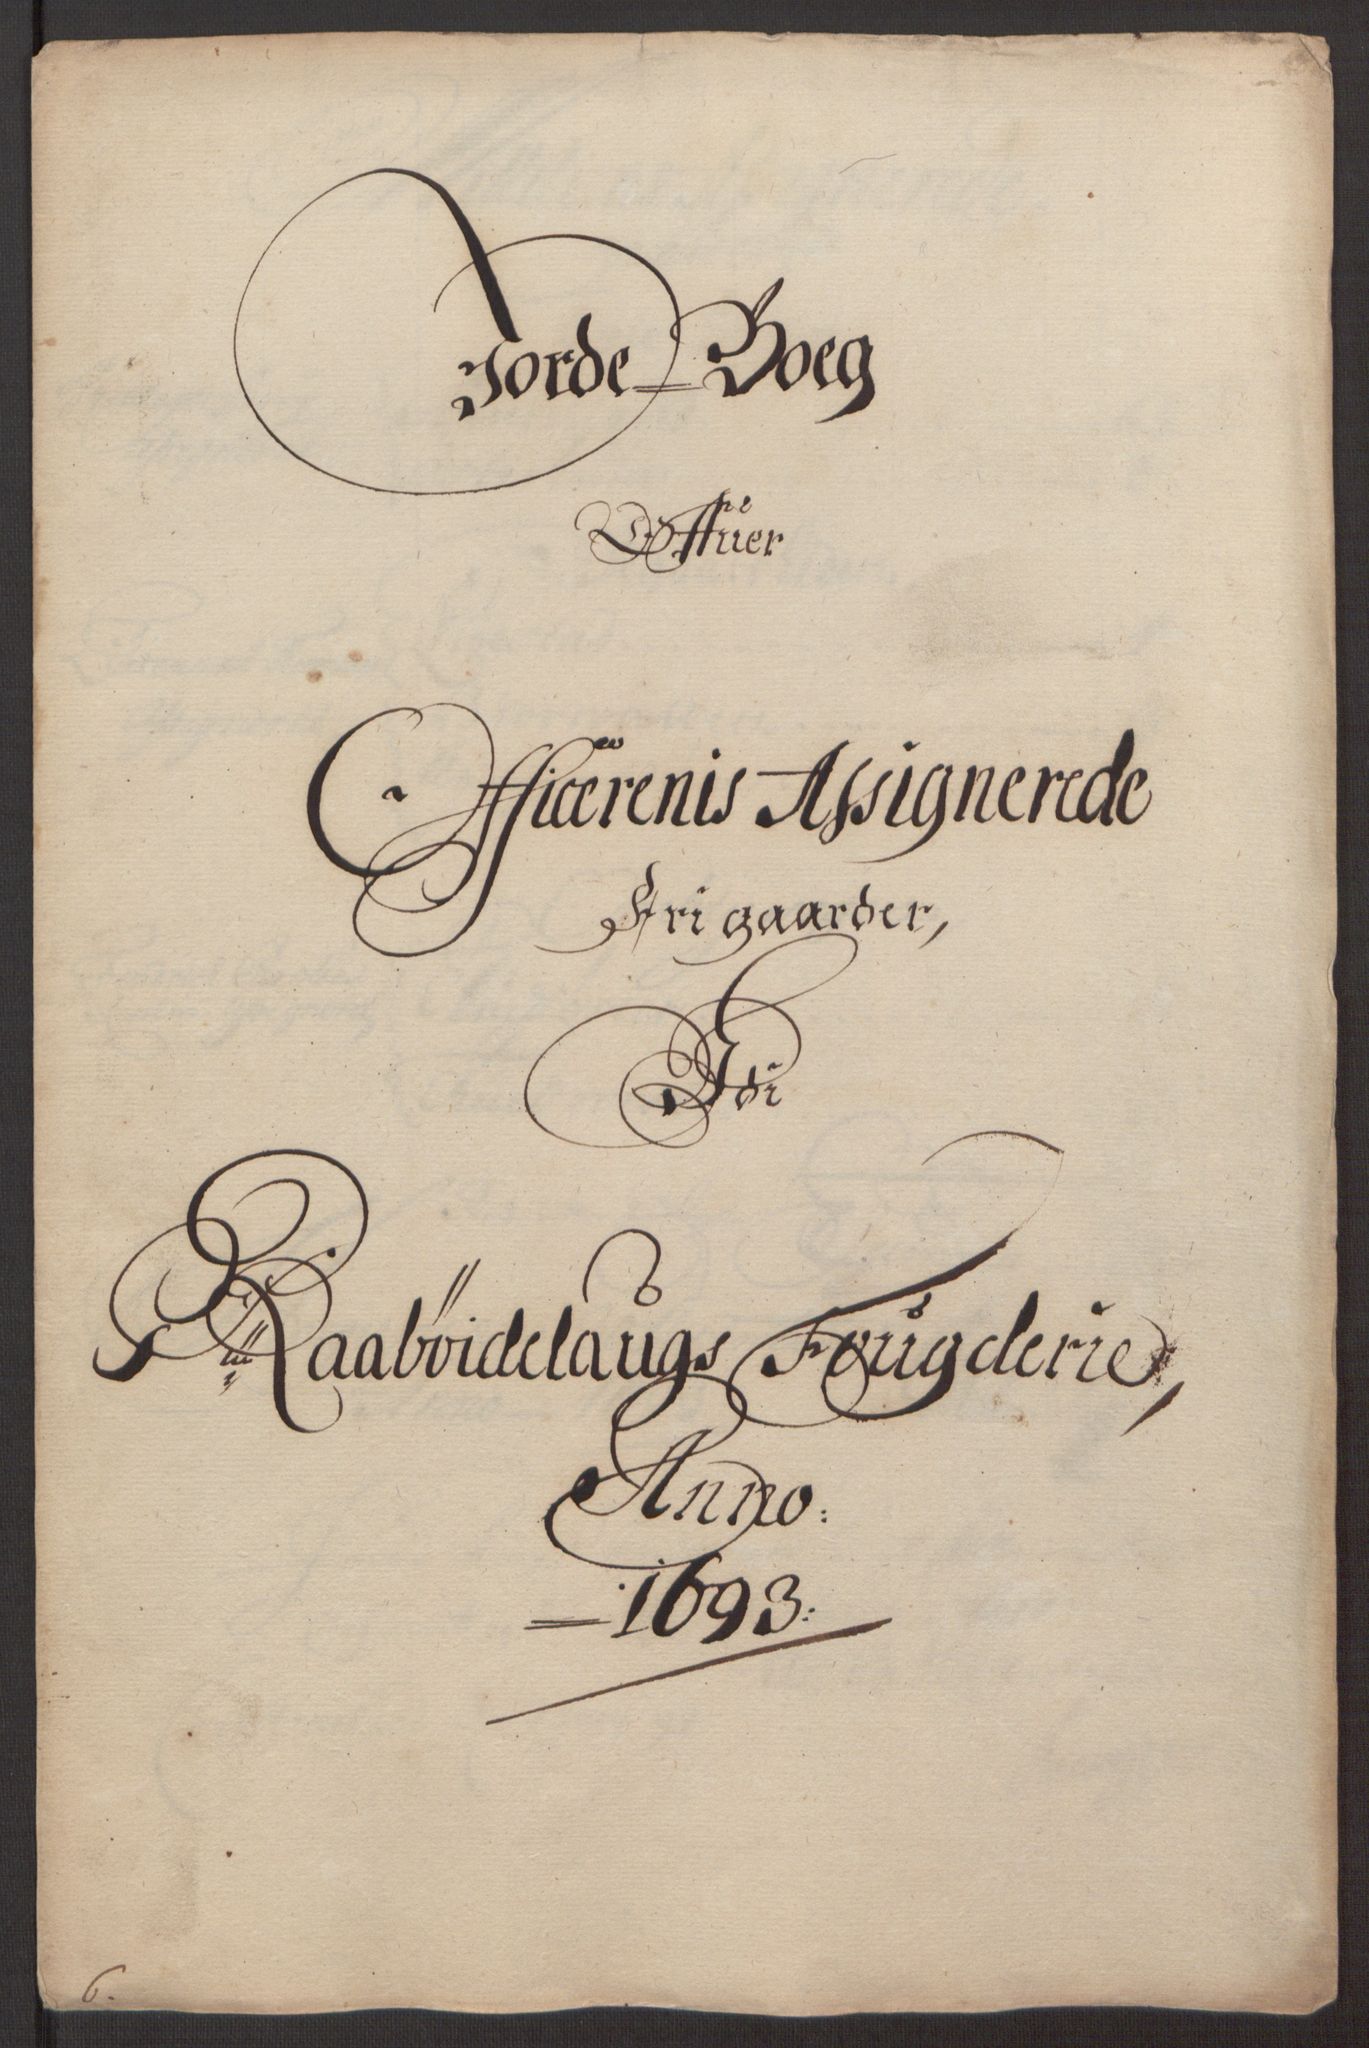 Jorde-Boeg
Offuer
Officerenis Assignerede
Frigaarder,
Udi
Raabøidelaugs Fougderie,
Anno:
1693:
6.